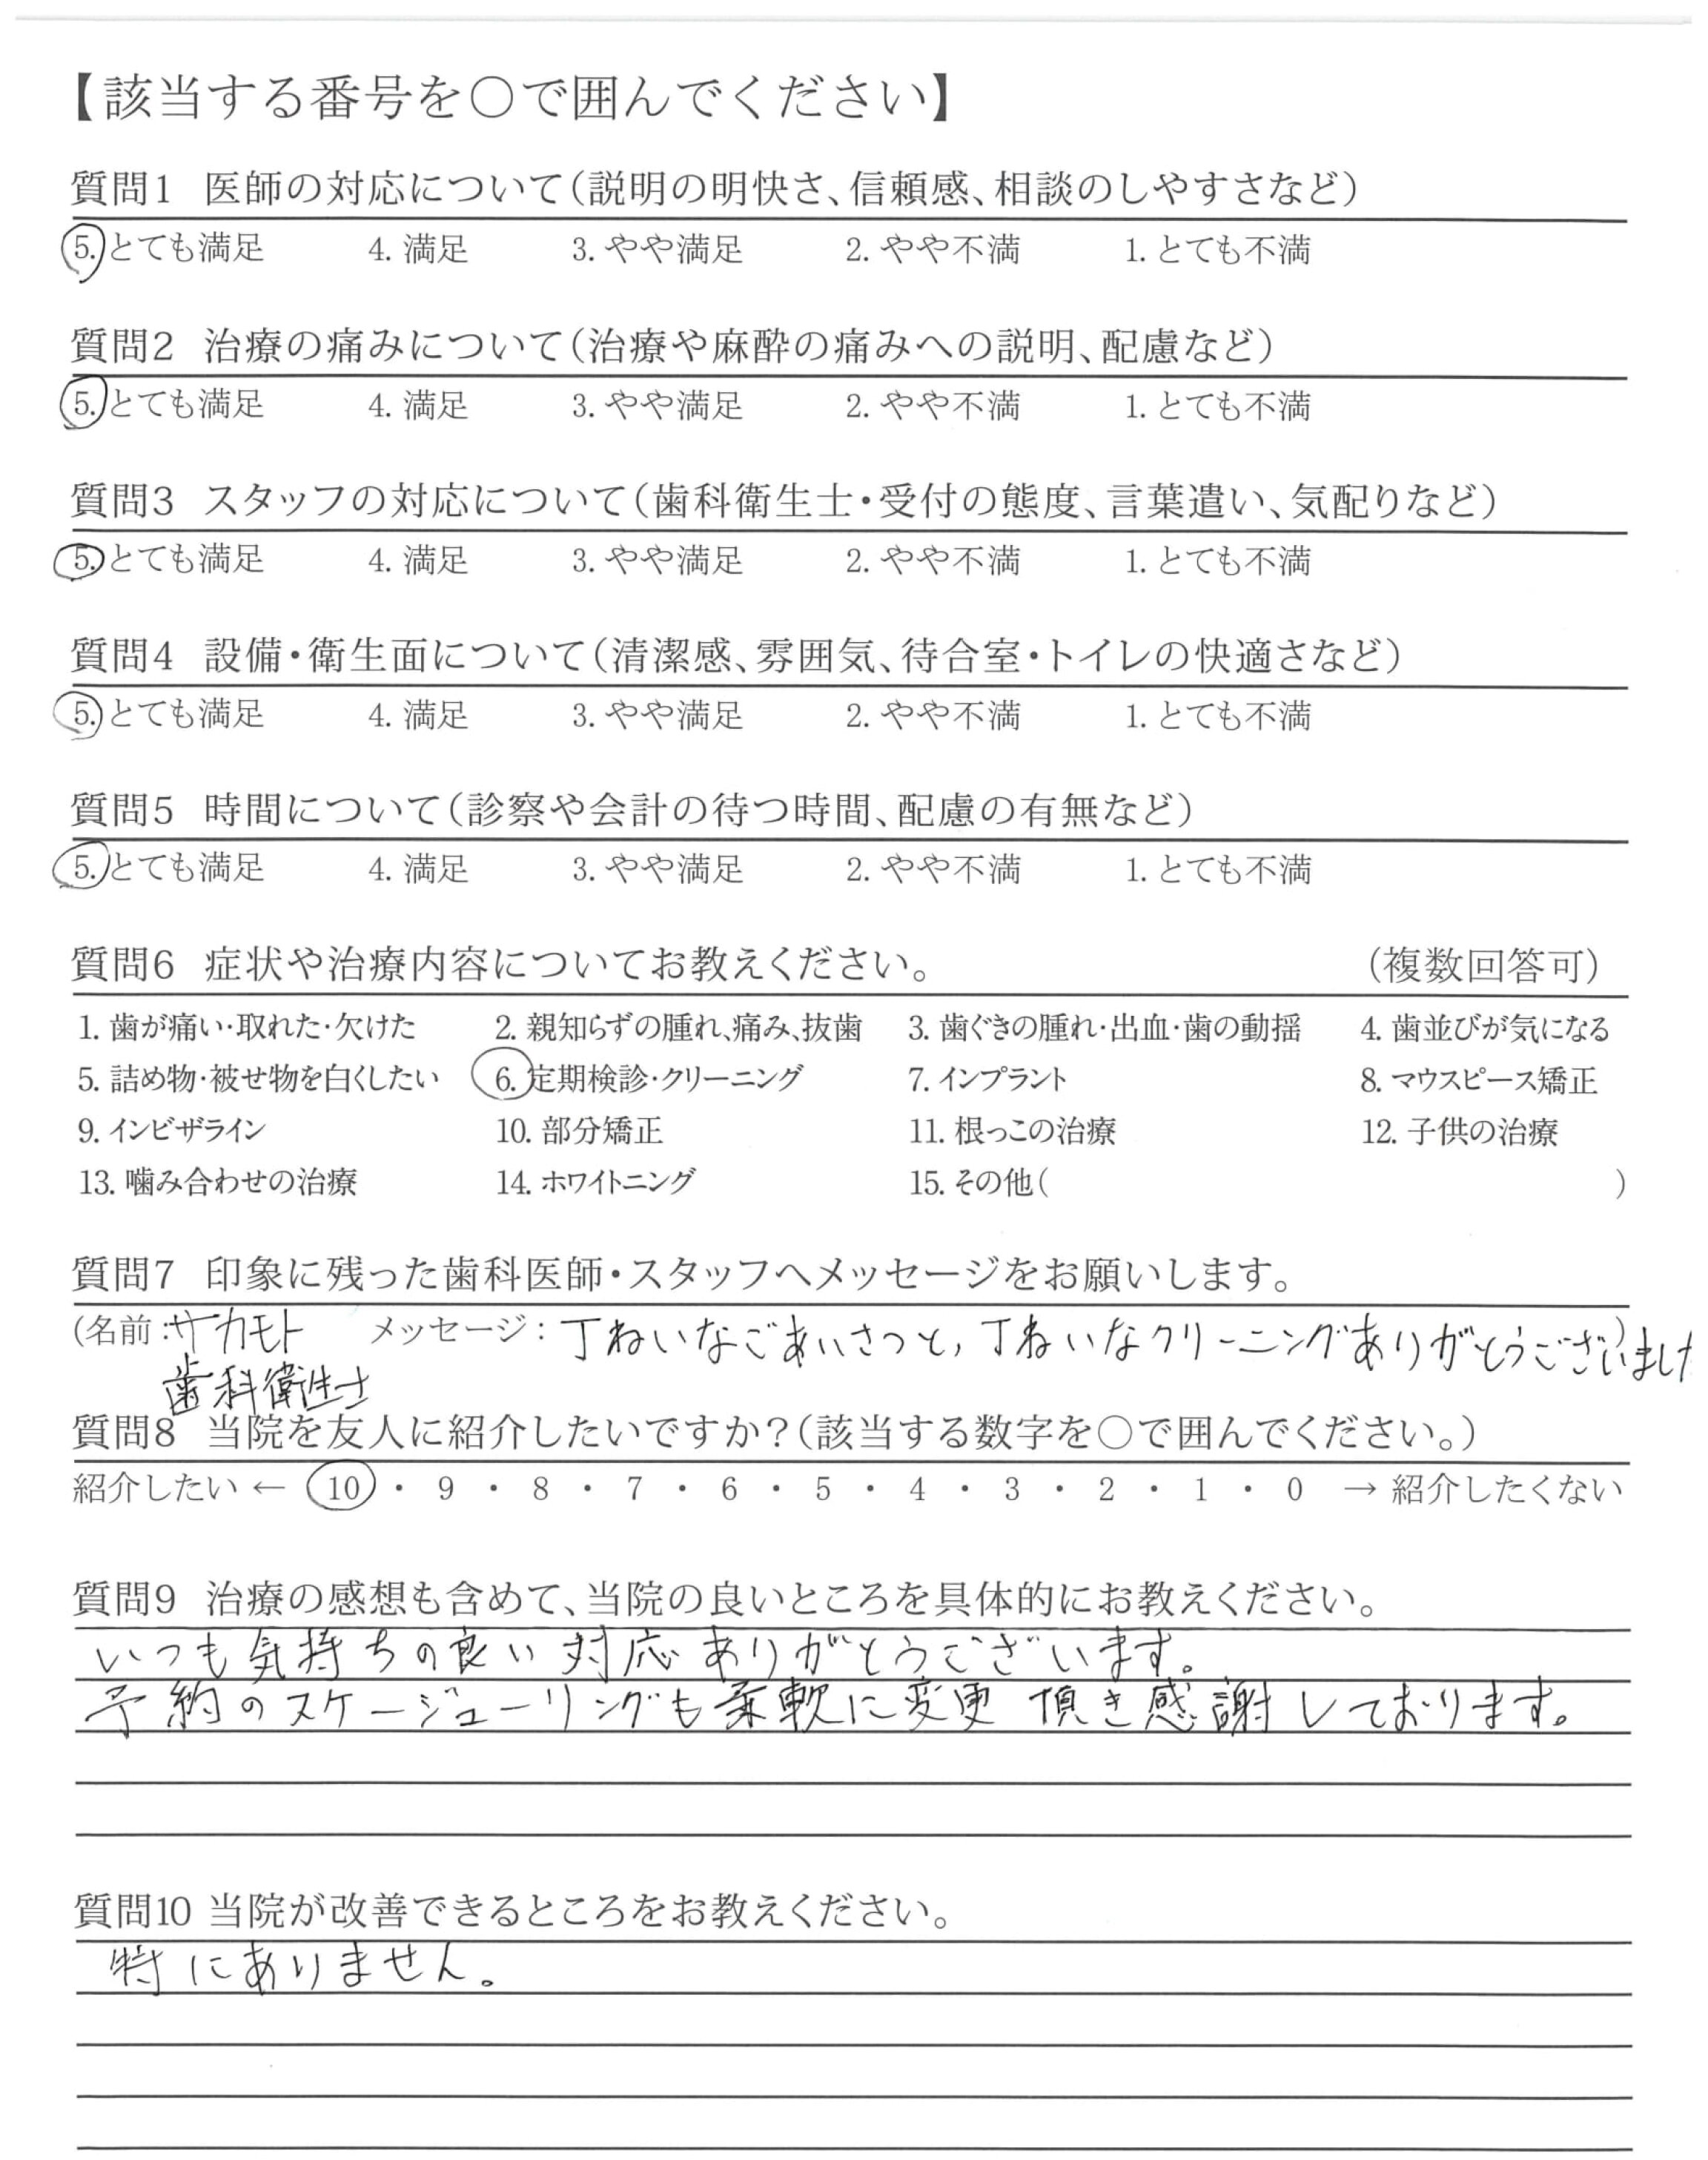 【該当する番号を○で囲んでください】
質問1 医師の対応について(説明の明快さ、信頼感、相談のしやすさなど)
5. とても満足 4. 満足 3. やや満足 2. やや不満 1. とても不満
質問2 治療の痛みについて(治療や麻酔の痛みへの説明、配慮など)
5. とても満足 4. 満足 3. やや満足 2. やや不満 1. とても不満
質問3 スタッフの対応について(歯科衛生士・受付の態度、言葉遣い、気配りなど)
5. とても満足 4. 満足 3. やや満足 2. やや不満 1. とても不満
質問4 設備・衛生面について(清潔感、雰囲気、待合室・トイレの快適さなど)
5. とても満足 4. 満足 3. やや満足 2. やや不満 1. とても不満
質問5 時間について(診察や会計の待つ時間、配慮の有無など)
5. とても満足 4. 満足 3. やや満足 2. やや不満 1. とても不満
質問6 症状や治療内容についてお教えください。 (複数回答可)
1. 歯が痛い・取れた・欠けた 2. 親知らずの腫れ、痛み、抜歯 3. 歯ぐきの腫れ・出血・歯の動揺 4. 歯並びが気になる
5. 詰め物・被せ物を白くしたい 6. 定期検診・クリーニング 7. インプラント 8. マウスピース矯正
9. インビザライン 10. 部分矯正 11. 根っこの治療 12. 子供の治療
13. 噛み合わせの治療 14. ホワイトニング 15. その他( )
質問7 印象に残った歯科医師・スタッフへメッセージをお願いします。
(名前:サカモト メッセージ:丁ねいなごあいさつと,丁ねいなクリーニングありがとうございました)
歯科衛生士
質問8 当院を友人に紹介したいですか?(該当する数字を○で囲んでください。)
紹介したい ← 10 ・ 9 ・ 8 ・ 7 ・ 6 ・ 5 ・ 4 ・ 3 ・ 2 ・ 1 ・ 0 → 紹介したくない
質問9 治療の感想も含めて、当院の良いところを具体的にお教えください。
いつも気持ちの良い対応ありがとうございます。
予約のスケージューリングも柔軟に変更頂き感謝しております。
質問10 当院が改善できるところをお教えください。
特にありません。